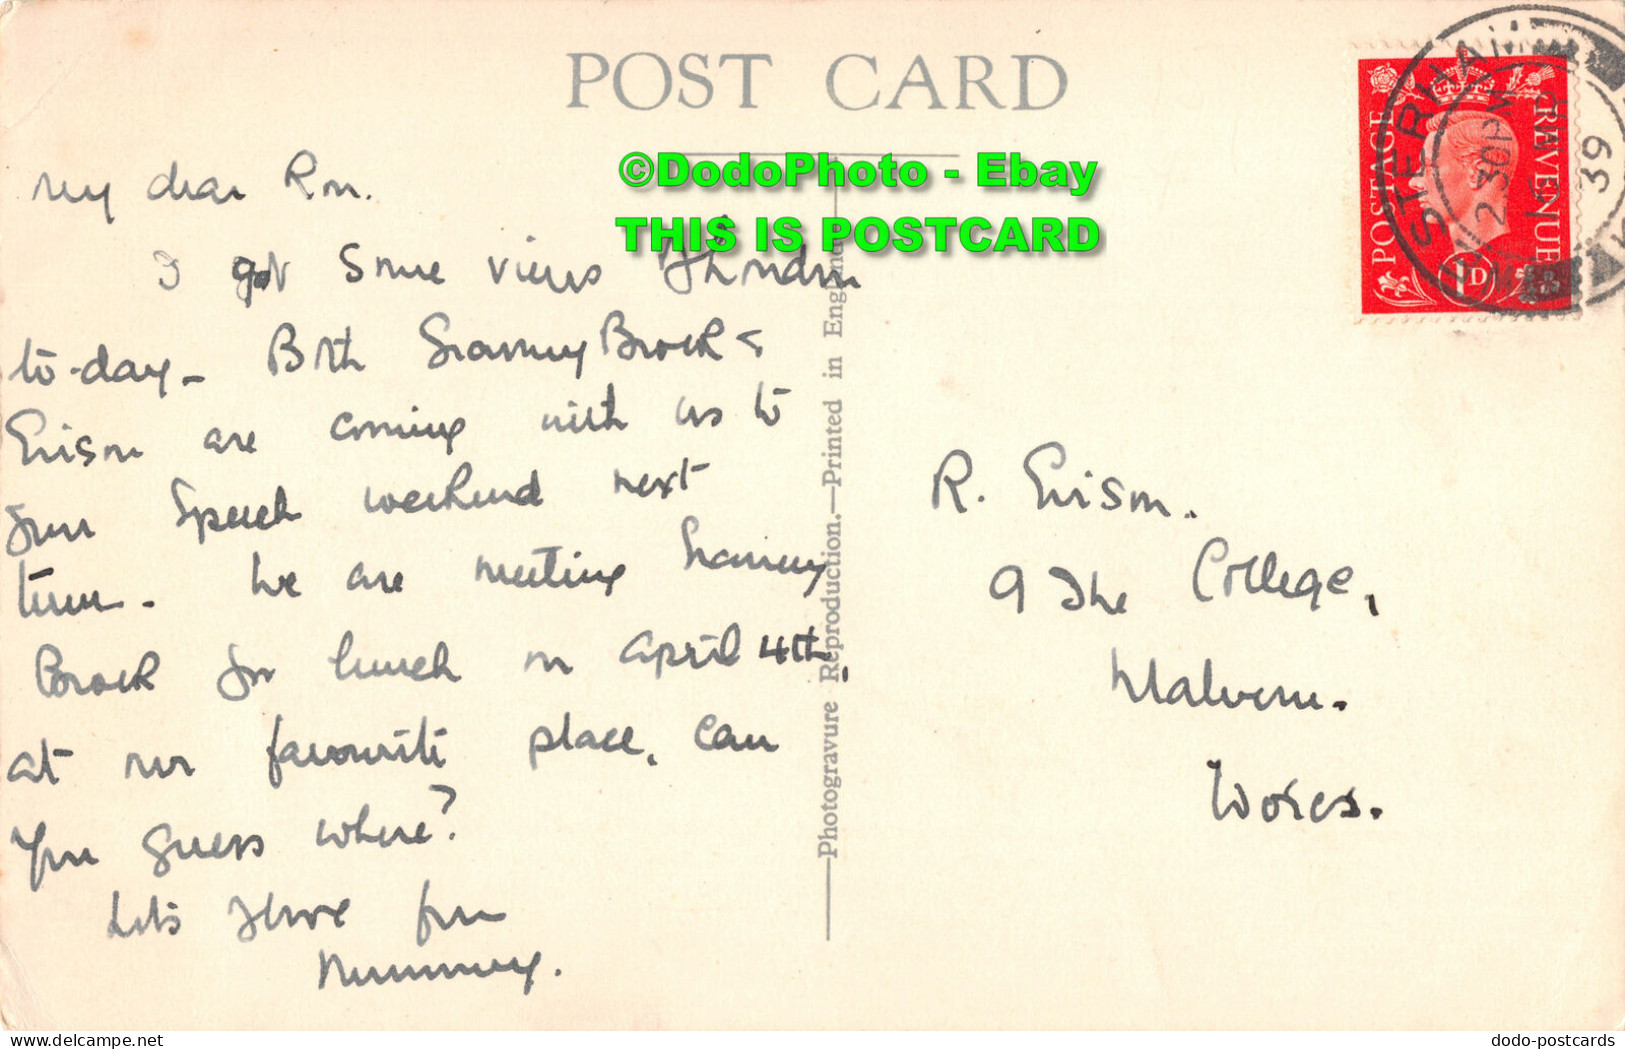 POST CARD
©DodoPhoto - Ebay
THIS IS POSTCARD
My dear Ron.
I got some views of London
to-day - Both Granny Brock &
Erison are coming with us to
your Speech weekend next
term. We are meeting Granny
Brock for lunch on April 4th.
at our favourite place. Can
you guess where?
Lots of love from
Mummy.
—Photogravure Reproduction.—Printed in England—
R. Erison.
9 The College,
Malvern.
Worcs.
POSTAGE
REVENUE
1D
STERHAM
2 30 PM
39
dodo-postcards
delcampe.net